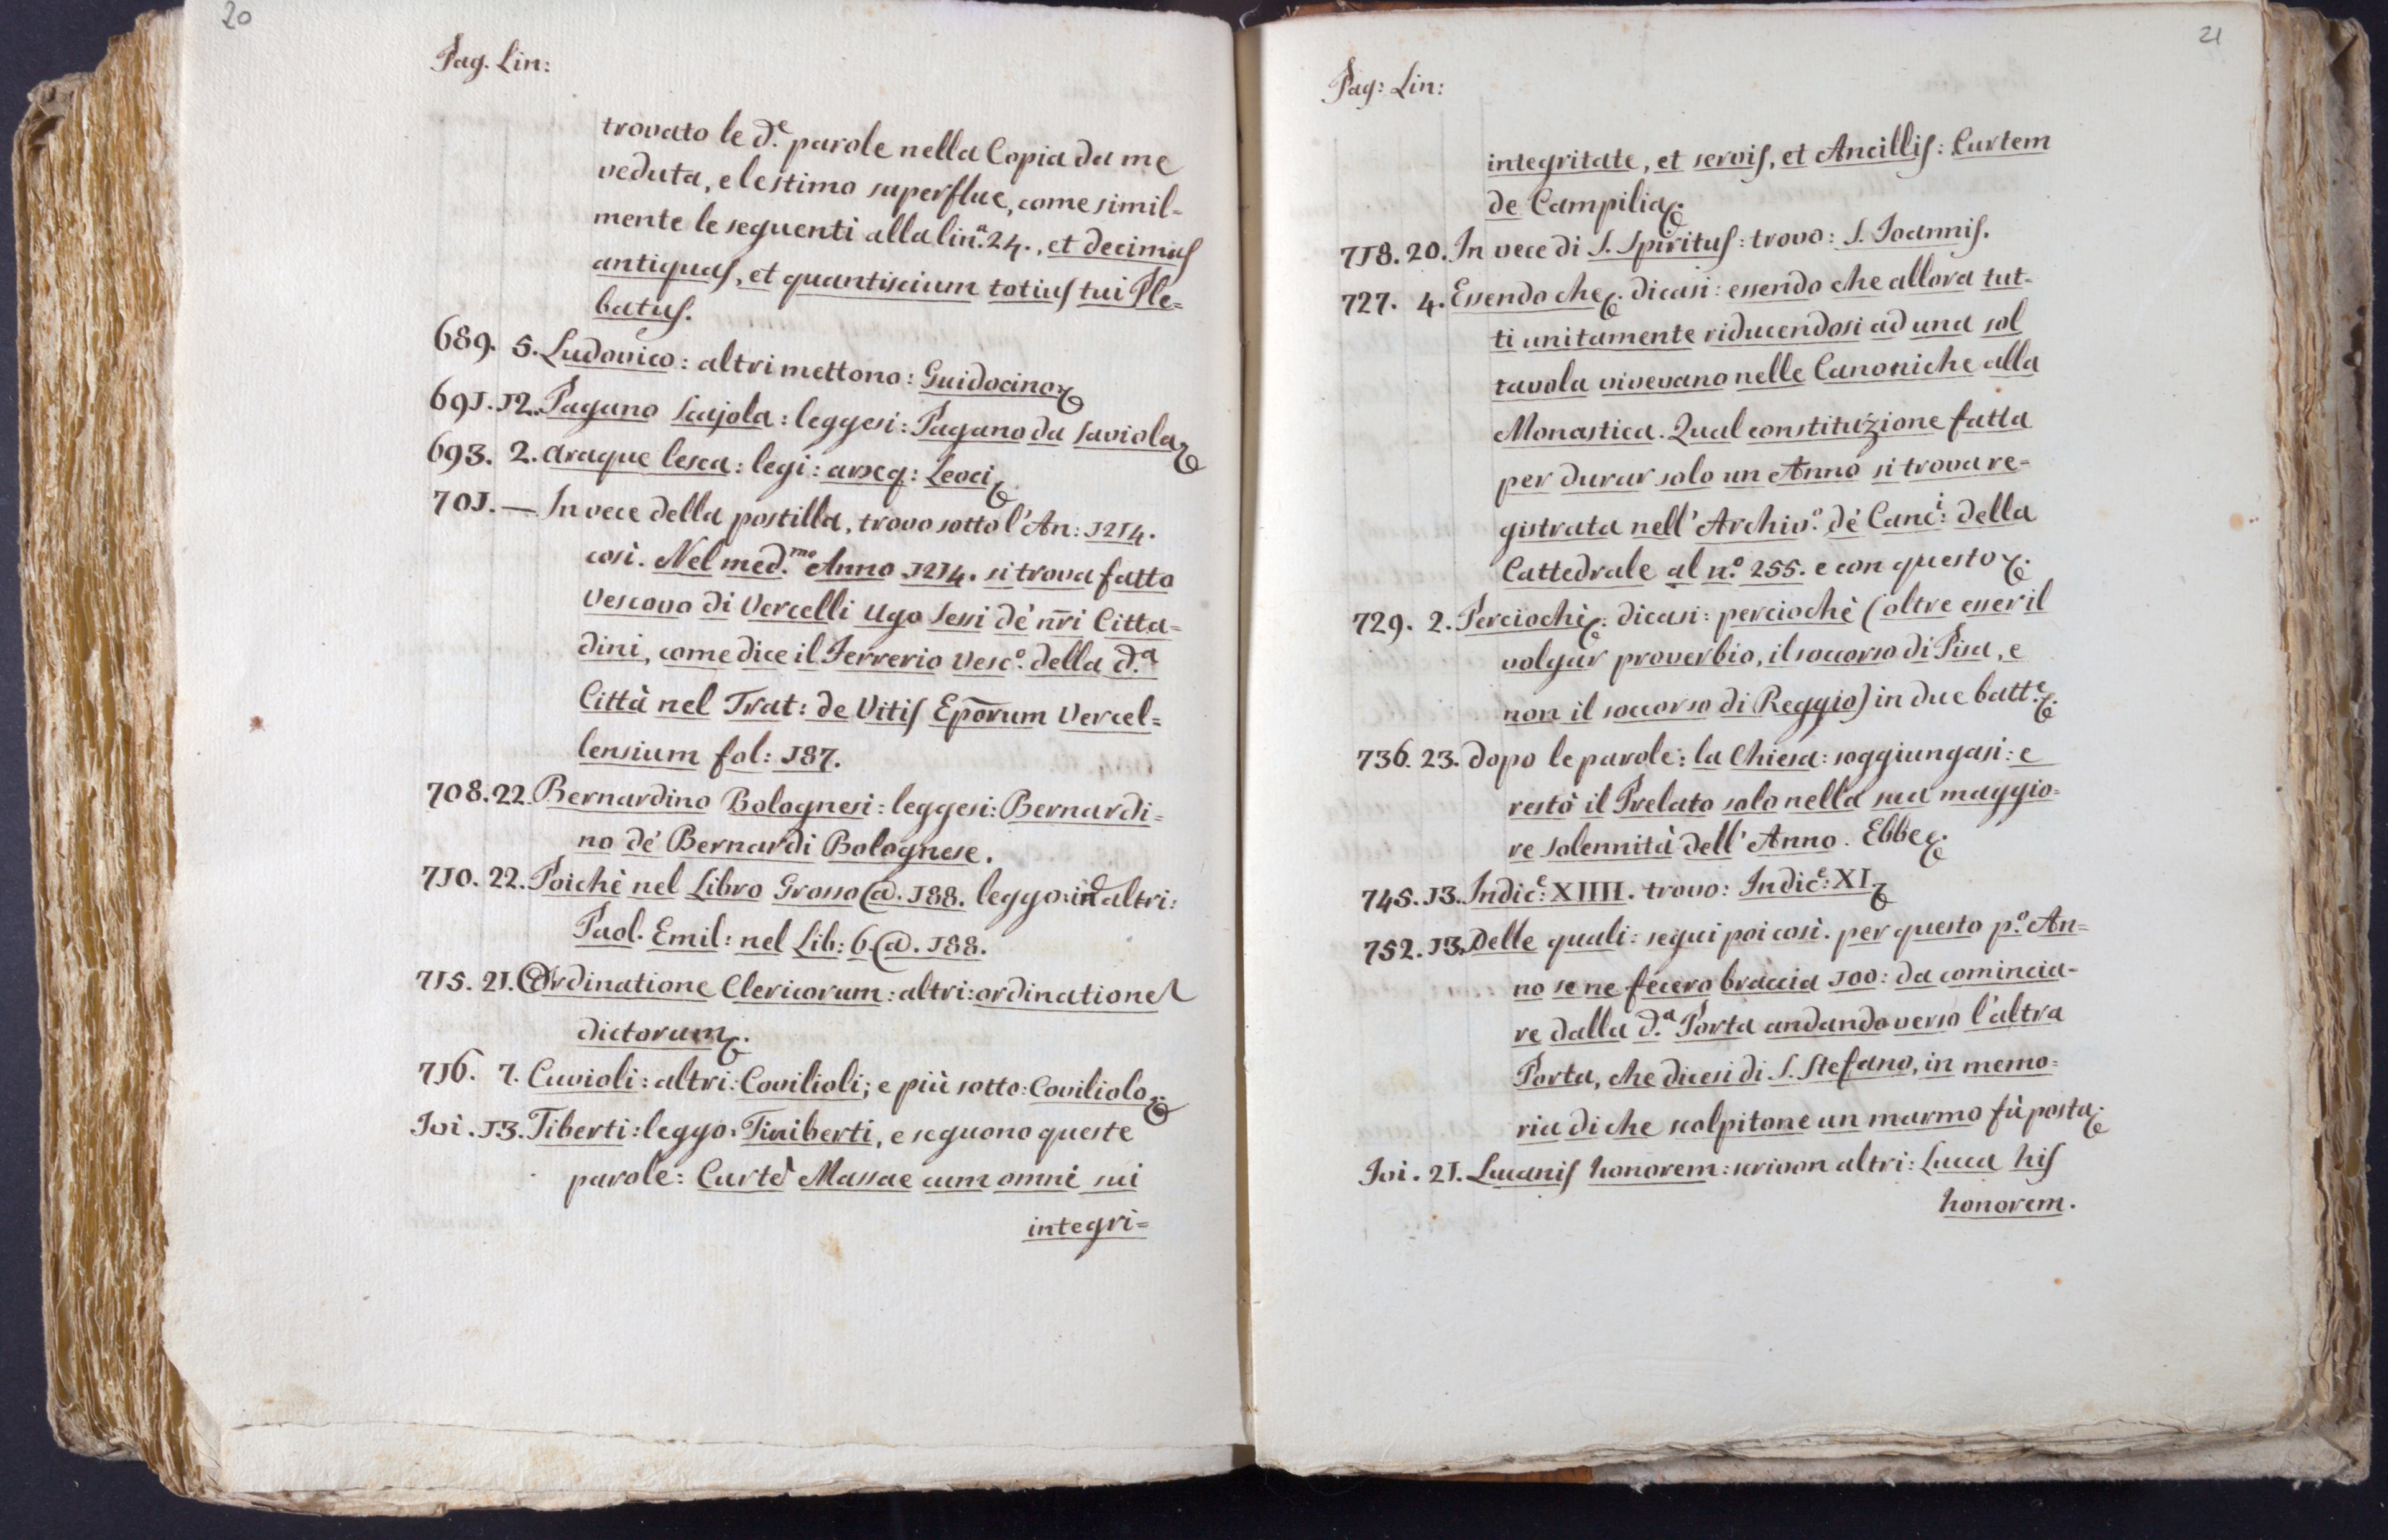 20
Pag. Lin:
trovato le d.e parole nella Copia da me
veduta, e le stimo superflue, come simil=
mente le seguenti alla lin.a 24., et decimas
antiquas, et quantiscium totius tui Ple=
batus.
689. 5. Ludovico: altri mettono: Guidocino &.
691. 12. Pagano Scajola: leggesi: Pagano da Saviola &.
693. 2. araque lesca: legi: arseq: Leoci &.
701. — In vece della postilla, trovo sotto l'An: 1214.
così. Nel med.mo Anno 1214. si trova fatto
Vescovo di Vercelli Ugo Sessi de' nr̄i Citta=
dini, come dice il Ferrerio Vesc.o della d.a
Città nel Trat: de Vitis Epōrum Vercel=
lensium fol: 187.
708. 22. Bernardino Bolognesi: leggesi: Bernardi=
no de' Bernardi Bolognese.
710. 22. Poichè nel Libro Grosso @. 188. leggo: in altri:
Paol. Emil: nel Lib: 6. @. 188.
715. 21. Ordinatione Clericorum: altri: ordinatione
dictorum &.
716. 7. Cuvioli: altri: Covilioli; e più sotto: Coviliolo &.
Ivi. 13. Tiberti: leggo: Tiniberti, e seguono queste
parole: Curte Massae cum omni sui
integri=
21
Pag: Lin:
integritate, et servis, et Ancillis: Curtem
de Campilia &.
718. 20. In vece di S. Spiritus: trovo: S. Joannis.
727. 4. Essendo che &. dicasi: essendo che allora tut-
ti unitamente riducendosi ad una sol
tavola vivevano nelle Canoniche alla
Monastica. Qual constituzione fatta
per durar solo un Anno si trova re=
gistrata nell'Archiv.o de' Canc.i: della
Cattedrale al n.o 255. e con questo &.
729. 2. Perciochè &. dicasi: perciochè (oltre esser il
volgar proverbio, il soccorso di Pisa, e
non il soccorso di Reggio) in due batt.e &.
736. 23. dopo le parole: la Chiesa: soggiungasi: e
restò il Prelato solo nella sua maggio=
re solennità dell'Anno. Ebbe &.
745. 13. Indic.e: XIIII. trovo: Indic.e: XI &.
752. 13. Delle quali: segui poi così. per questo p.o An=
no se ne fecero braccia 100: da comincia-
re dalla d.a Porta andando verso l'altra
Porta, che dicesi di S. Stefano, in memo=
ria di che scolpitone un marmo fù posta &.
Ivi. 21. Lucanis honorem: scrivon altri: Lucca his
honorem.